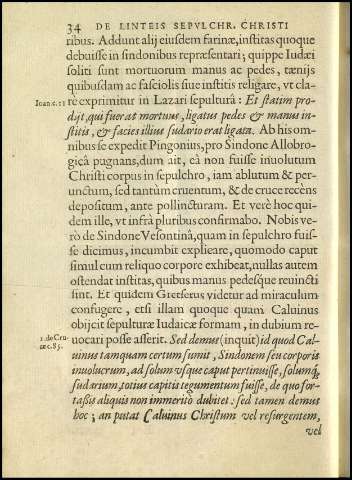 34 DE LINTEIS SEPVLCHR. CHRISTI
ribus. Addunt alij eiusdem farinæ, institas quoque
debuisse in sindonibus repræsentari; quippe Iudæi
soliti sunt mortuorum manus ac pedes, tænijs
quibusdam ac fasciolis siue institis religare, vt cla-
Ioan. c. 11
rè exprimitur in Lazari sepulturâ: Et statim pro-
dijt, qui fuerat mortuus, ligatus pedes & manus in-
stitis, & facies illius sudario erat ligata. Ab his om-
nibus se expedit Pingonius, pro Sindone Allobro-
gicâ pugnans, dum ait, eâ non fuisse inuolutum
Christi corpus in sepulchro, iam ablutum & per-
unctum, sed tantùm cruentum, & de cruce recèns
depositum, ante pollincturam. Et verè hoc qui-
dem ille, vt infrà pluribus confirmabo. Nobis ve-
rò de Sindone Vesontinâ, quam in sepulchro fuis-
se dicimus, incumbit explicare, quomodo caput
simul cum reliquo corpore exhibeat, nullas autem
ostendat institas, quibus manus pedesque reuincti
sint. Et quidem Gretserus videtur ad miraculum
confugere, etsi illam quoque quam Caluinus
obijcit sepulturæ Iudaicæ formam, in dubium re-
1. de Cru-
ce c. 85.
uocari posse asserit. Sed demus (inquit) id quod Cal-
uinus tamquam certum sumit, Sindonem seu corporis
inuolucrum, ad solum vsque caput pertinuisse, solumq́;
sudarium, totius capitis tegumentum fuisse, de quo for-
tassis aliquis non immeritò dubitet: sed tamen demus
hoc; an putat Caluinus Christum vel resurgentem,
vel